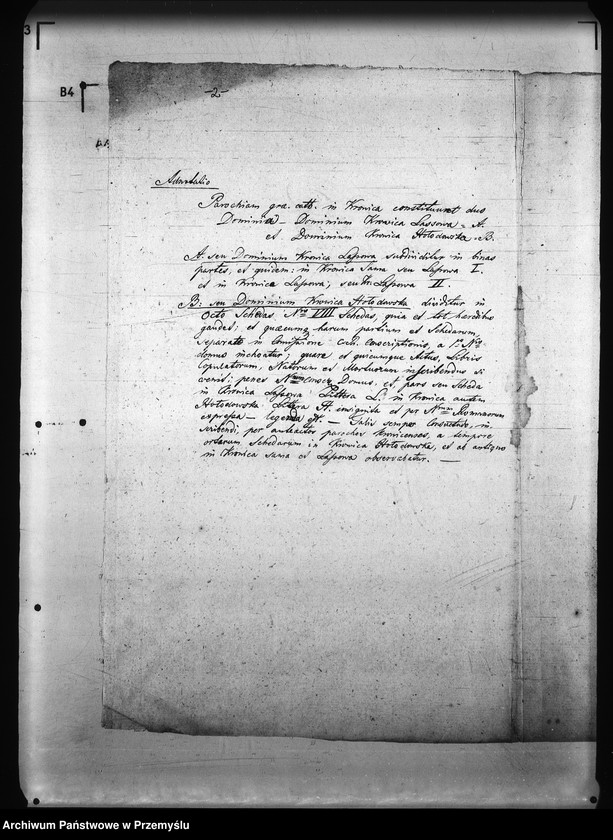 3
B4
-2-
Adnotatio
Parochiam gr. cath. in Krowica constituunt duo
Dominia – Dominium Krowica Lassowa – A.
et Dominium Krowica Hołodowska – B.
A. seu Dominium Krowica Lassowa subdividitur in binas
partes, et quidem: in Krowica Sama seu Lassowa I.
et in Krowica Lassowa, seu Lassowa II.
B: seu Dominium Krowica Hołodowska dividitur in
octo Schedas Nro VIII Schedas, quia et tot haeredibus
gaudet; et quaecunq harum partium et Schedarum,
separato in Conscriptionis, a 1º Nro
domus inchoatur; quare et quicunque Actus, Libris
Copulatorum, Natorum et Mortuorum inscribendus
venit: penes Num Domus, et pars seu Scheda
in Krowica Lassowa Littera L: in Krowica autem
Hołodowska Littera H. insignita et per Num Romanorum
expressa – legenda H. – Talis semper Consuetudo, in-
scribendi, per anteactos parochos Krowicenses, a tempore
ortarum Schedarum in Krowica Hołodowska, et ab antiquo
in Krowica sama et Lassowa observabatur. —
Archiwum Państwowe w Przemyślu